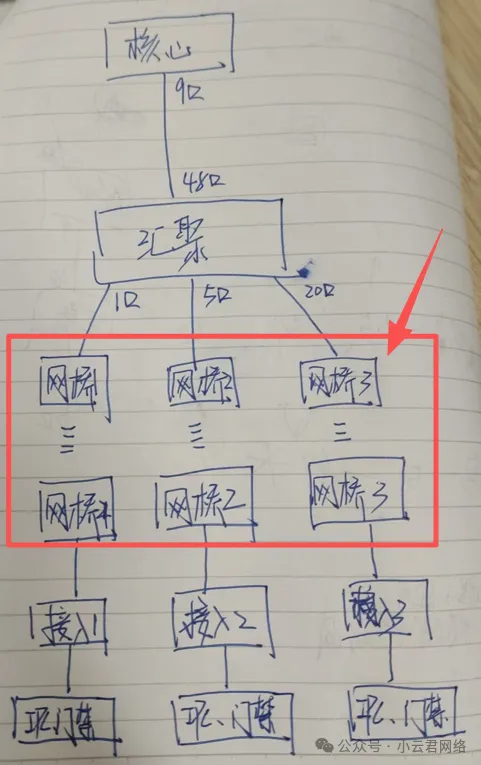 核心
9口
48口
汇聚
1口 5口 20口
网桥1 网桥2 网桥3
网桥1 网桥2 网桥3
接入1 接入2 接入3
门禁 门禁 门禁
公众号·小云君网络